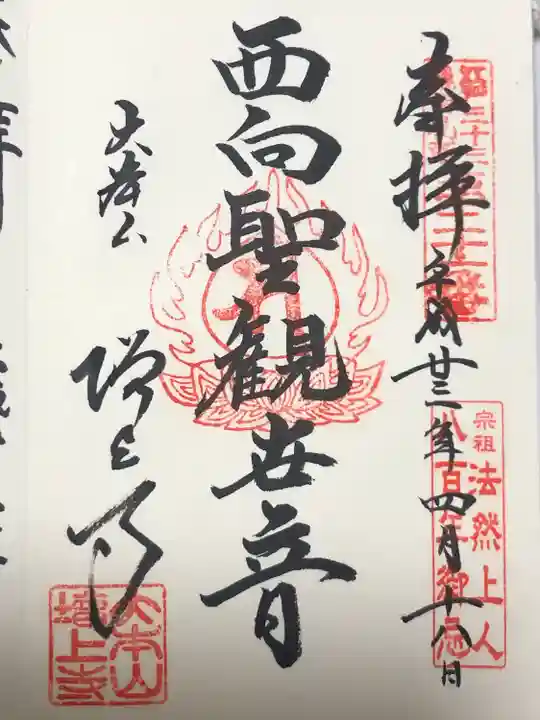 奉拝
平成廿三年四月十八日
宗祖
法然上人
八百年御忌
西向聖観世音
大本山
増上寺
大本山
増上寺